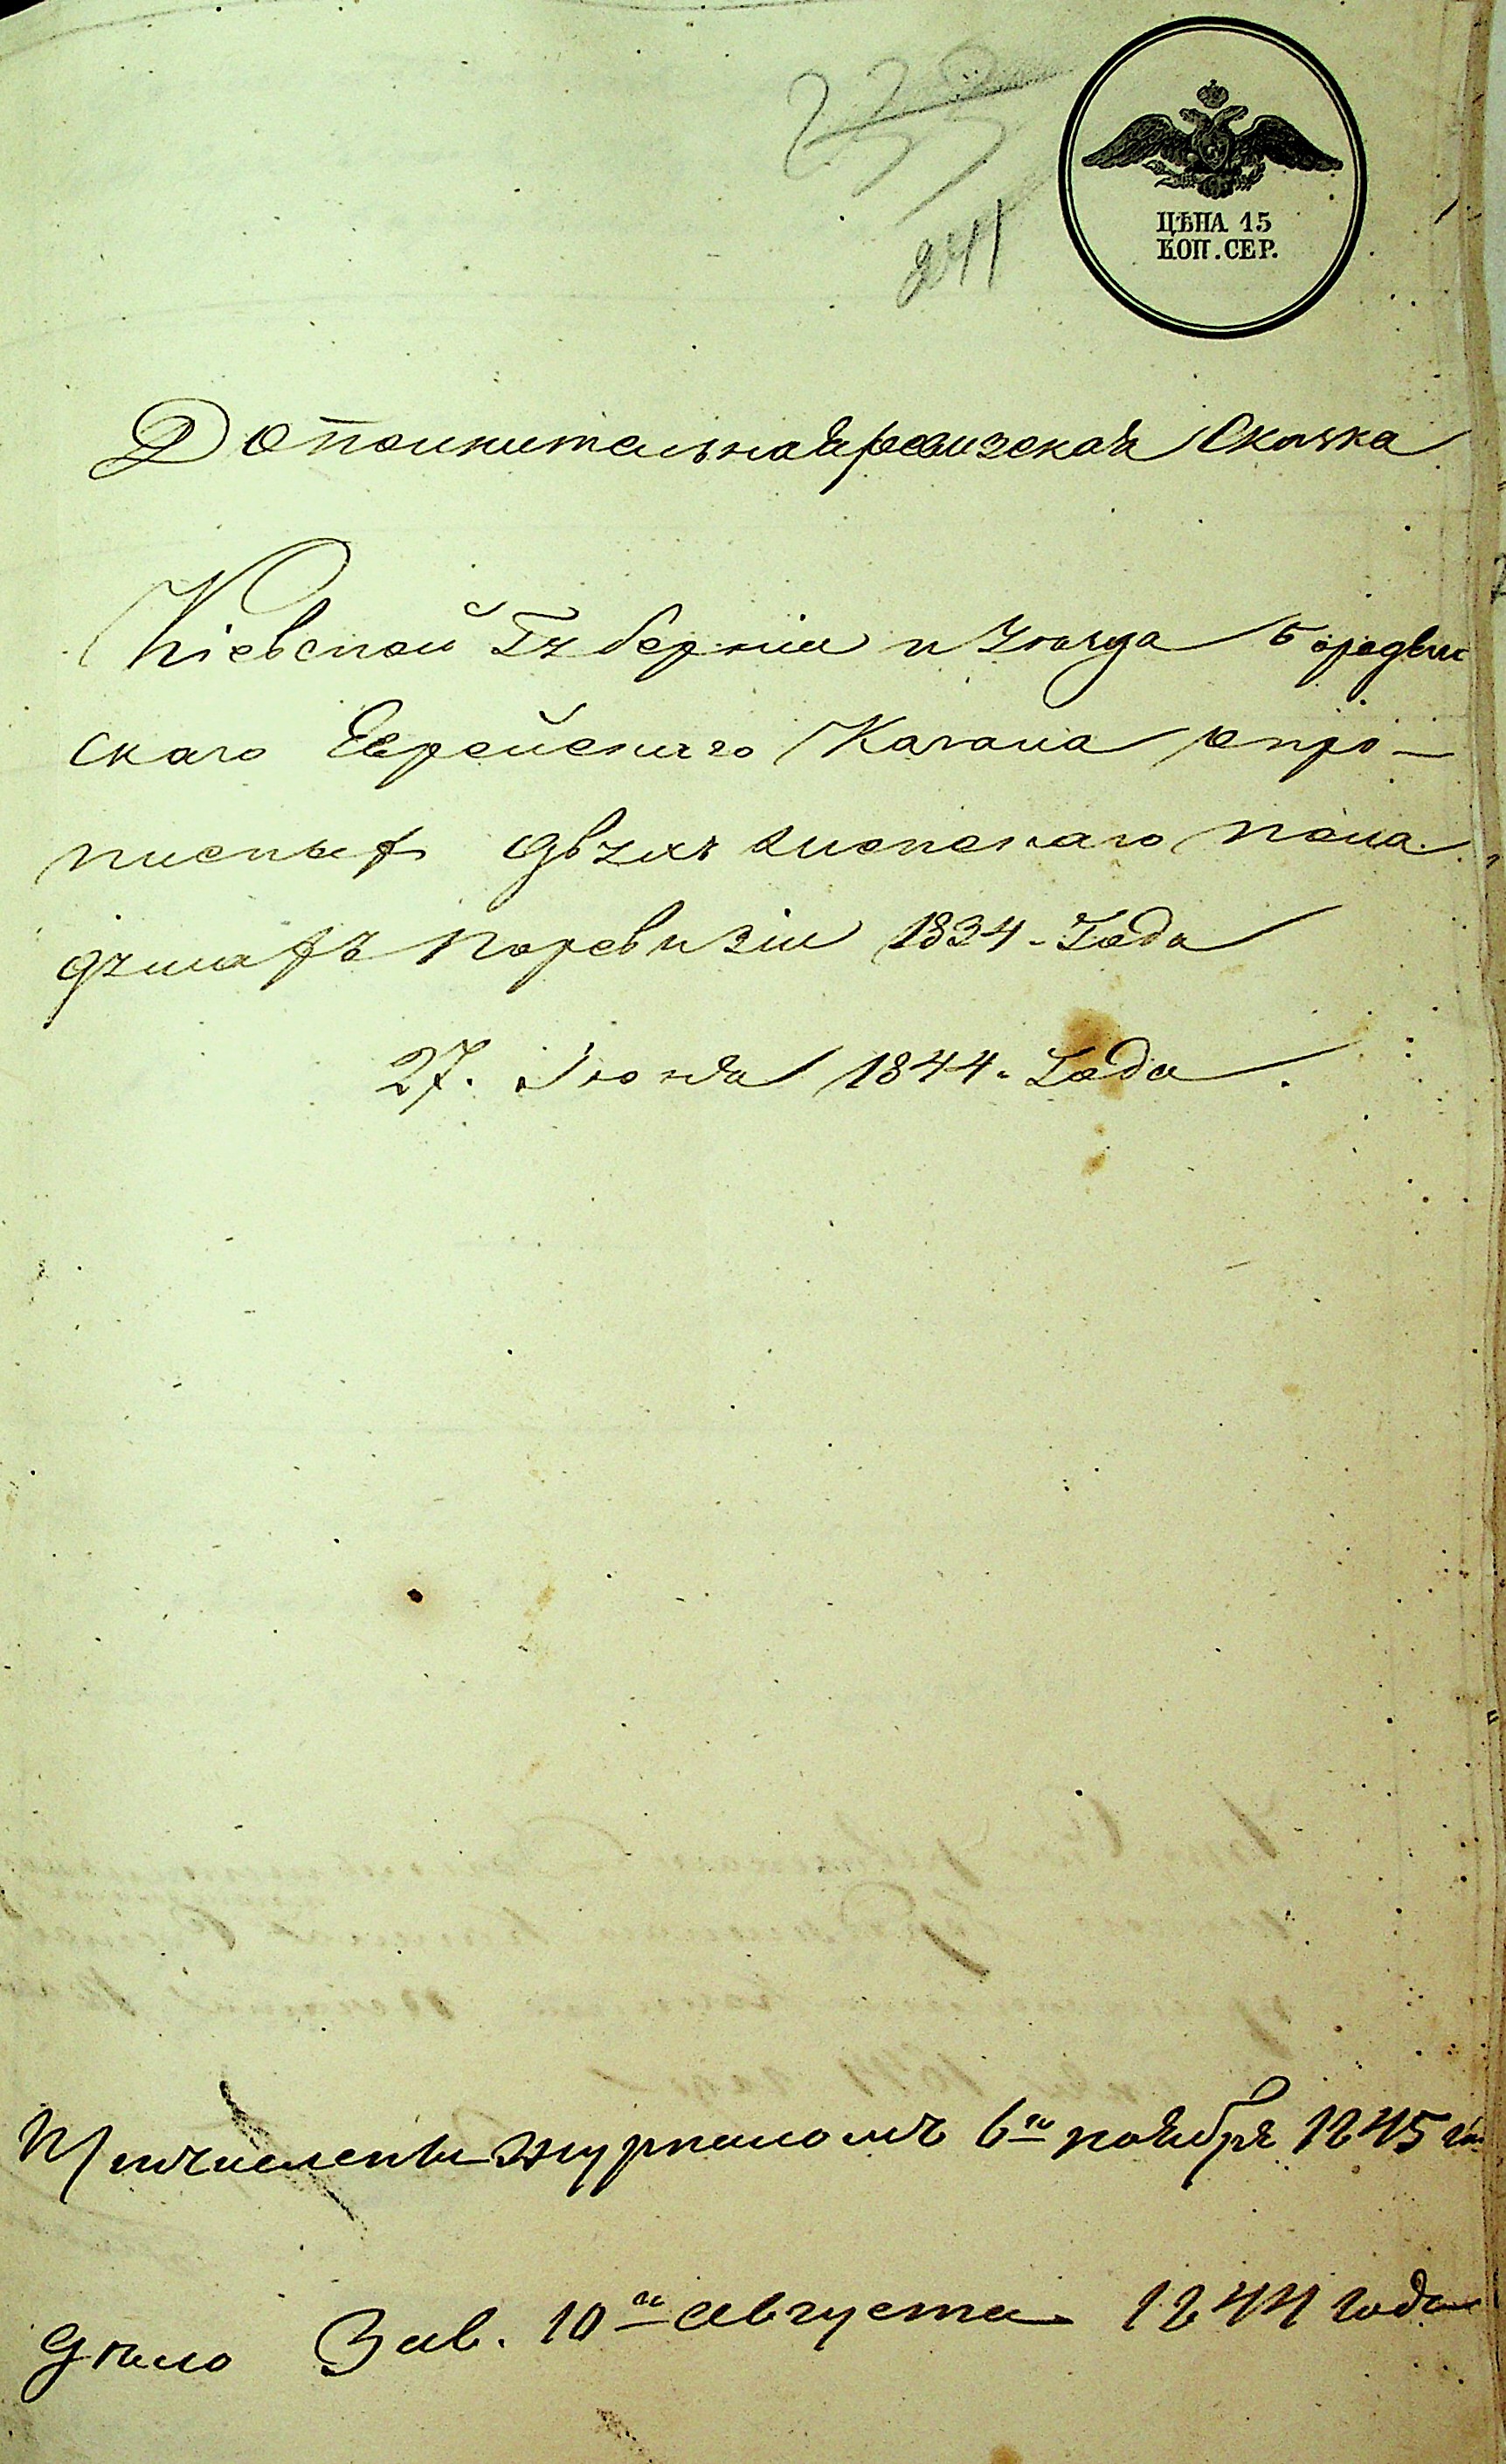 239
241
ЦѢНА 15
КОП. СЕР.
Дополнительная ревизская Скаска
Кіевской Губерніи и Уѣзда Бородян
скаго Еврейскаго Кагала опро-
писныхъ двухъ женскаго пола
душахъ поревизіи 1834. Года
27. Іюня 1844. Года.
Причислены журналомъ 6го ноября 1845 го
дѣло Зав. 10го августа 1844 года